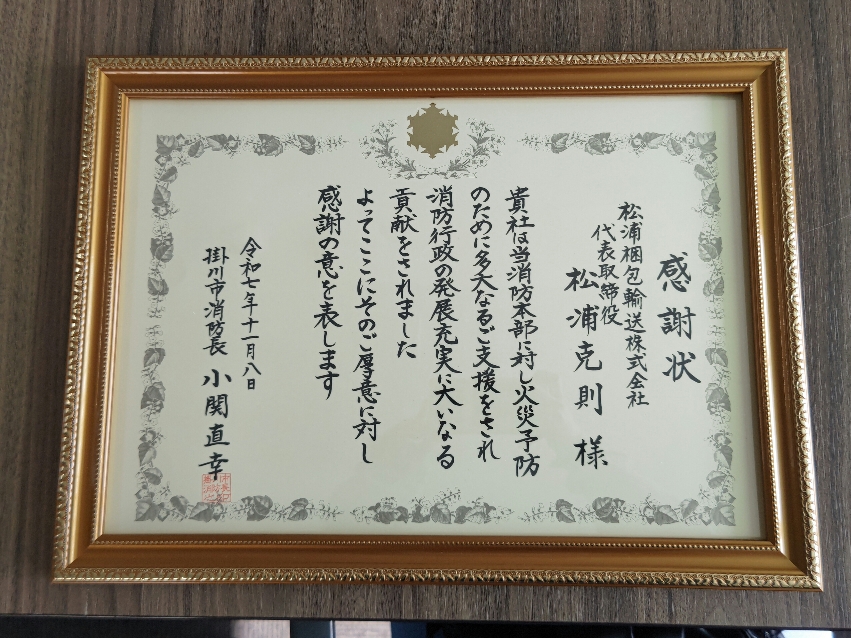 感謝状
松浦梱包輸送株式会社
代表取締役
松浦克則様
貴社は当消防本部に対し火災予防
のために多大なるご支援をされ
消防行政の発展充実に大いなる
貢献をされました
よってここにそのご厚意に対し
感謝の意を表します
令和七年十一月八日
掛川市消防長 小関直幸